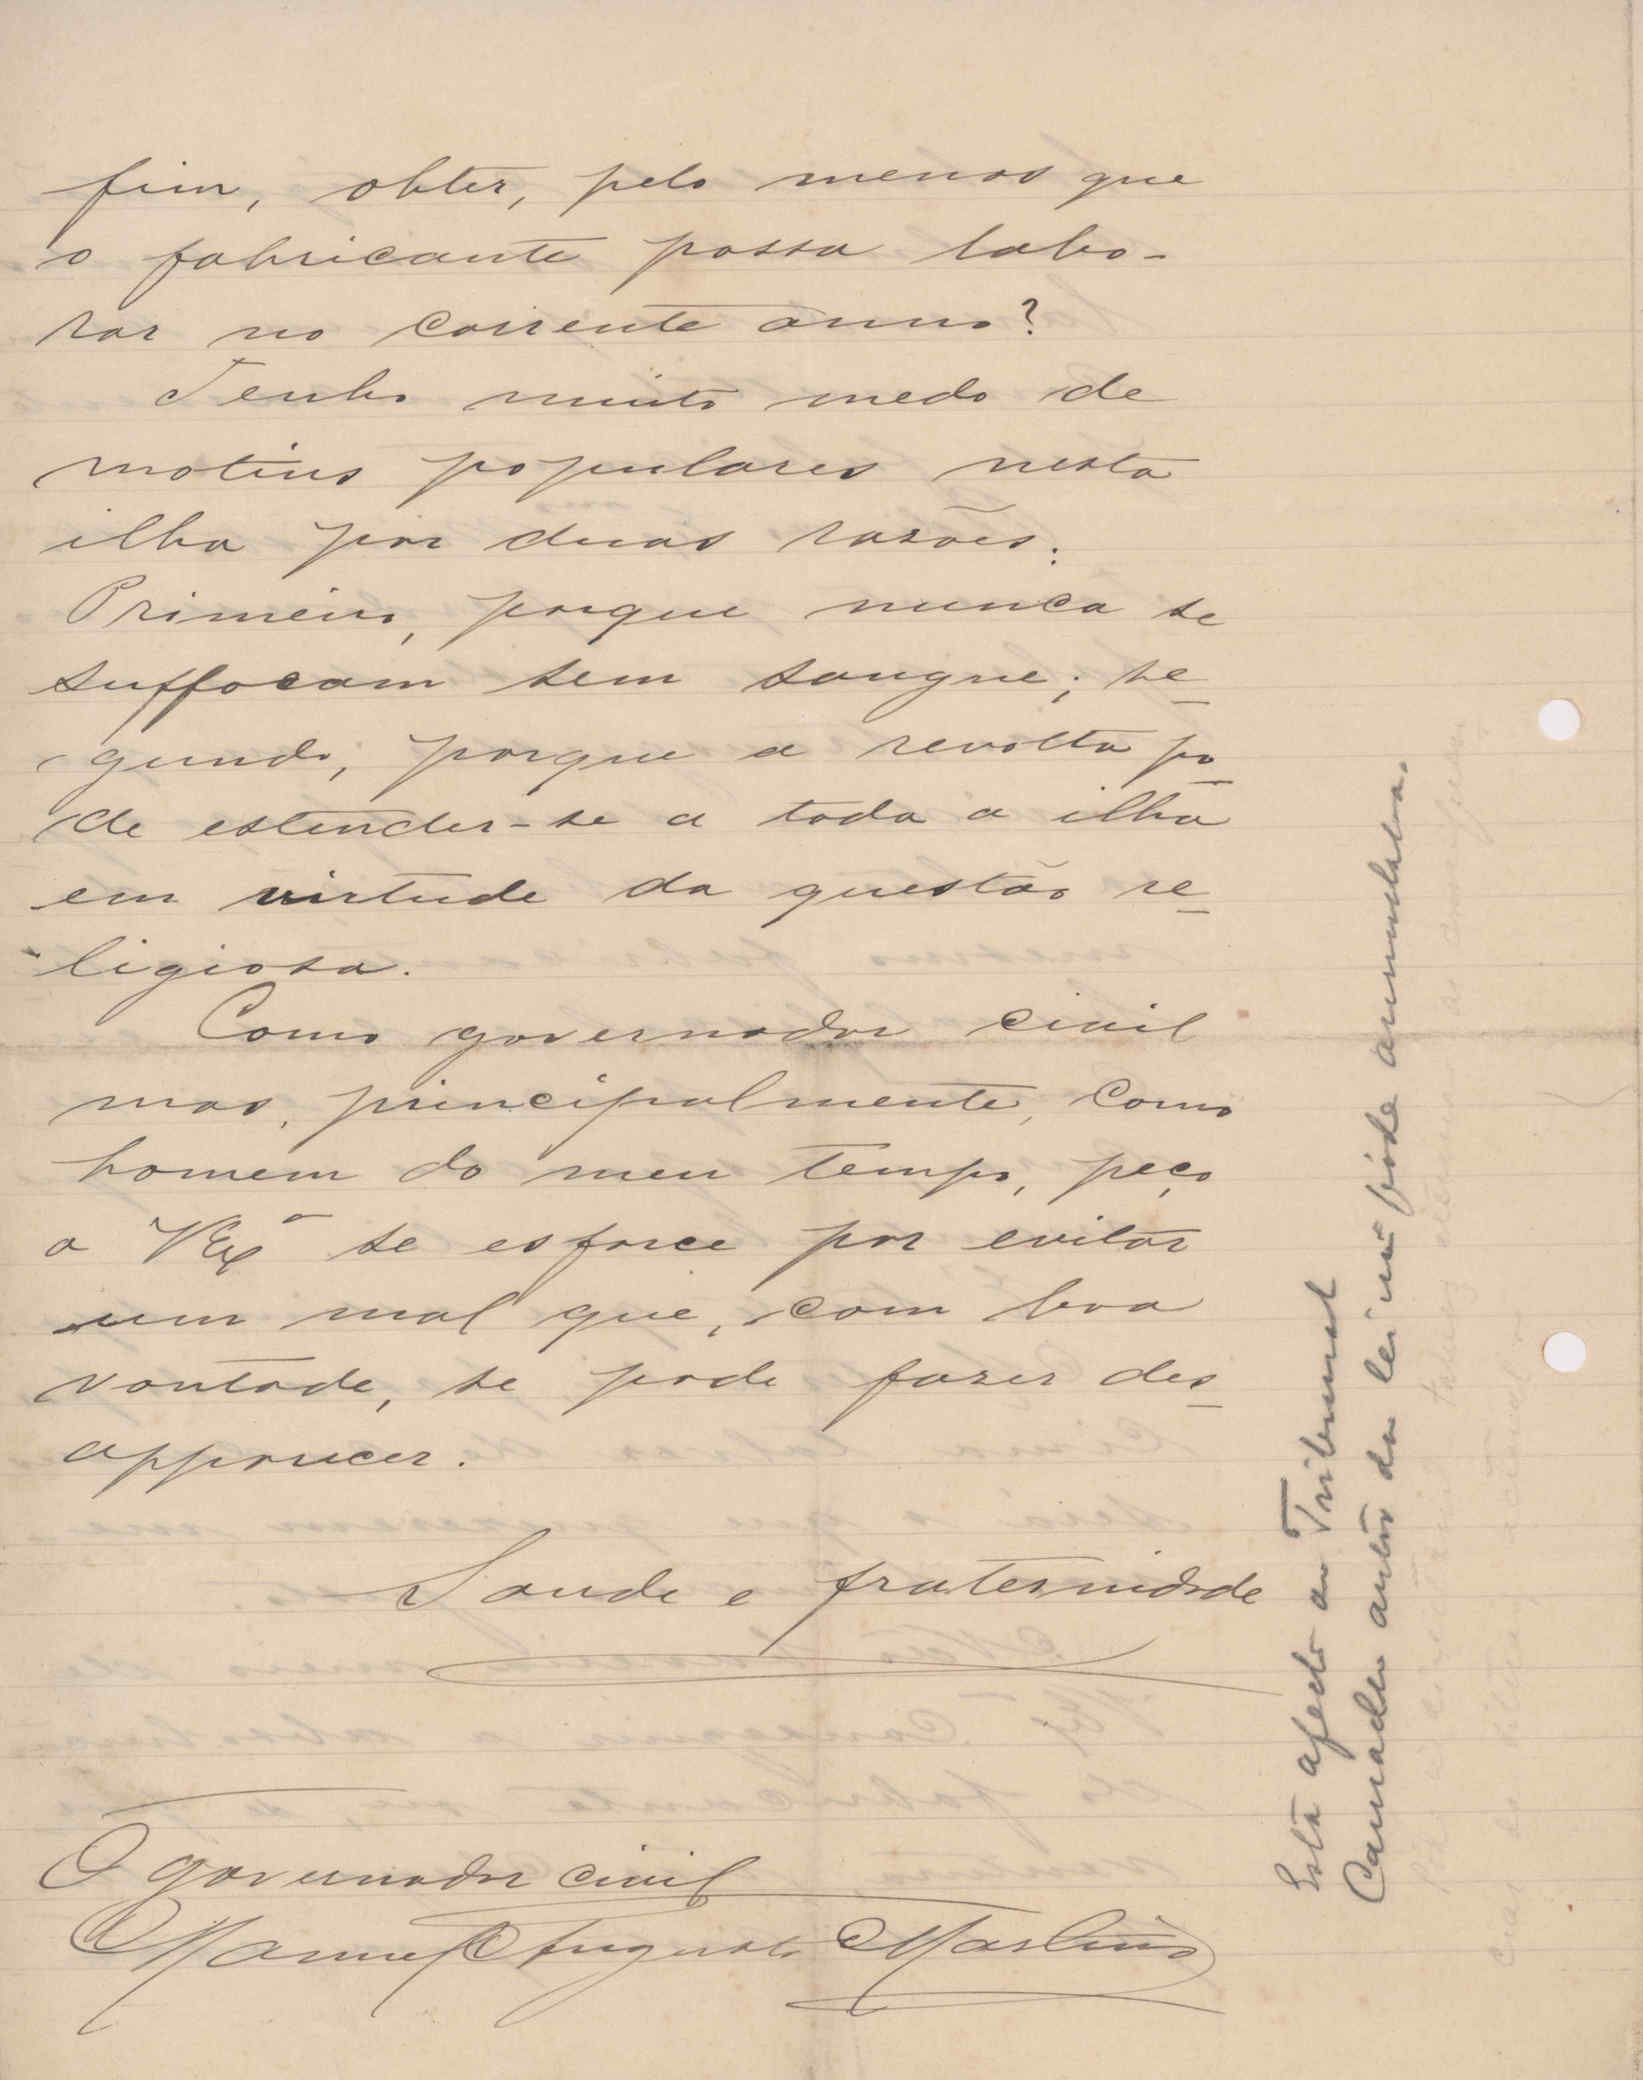 fim, obter, pelo menos que
o fabricante possa labo-
rar no corrente anno?
Tenho muito medo de
motins populares nesta
ilha por duas rasões.
Primeiro, porque nunca se
suffocam sem sangue; se-
gundo, porque a revolta po-
de estender-se a toda a ilha
em virtude da questão re-
ligiosa.
Como governador civil
mas, principalmente, como
homem do meu tempo, peço
a VExª se esforce por evitar
um mal que, com boa
vontade, se pode fazer des-
apparecer.
Saude e fraternidade
O governador civil
Manuel Augusto Martins
Está afecto ao Tribunal
Camacha antes da lei não póde